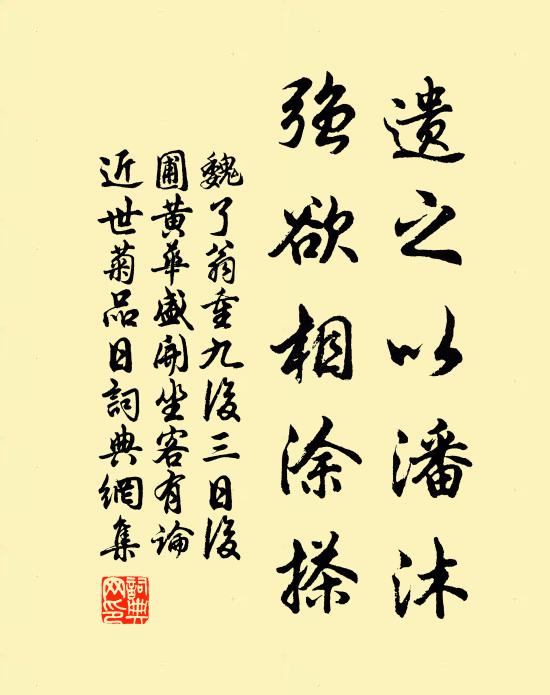 遗之以潘沐
强欲相涂搽
魏了翁重九後三日後
圃黄華盛開坐客有論
近世菊品日詞典網集